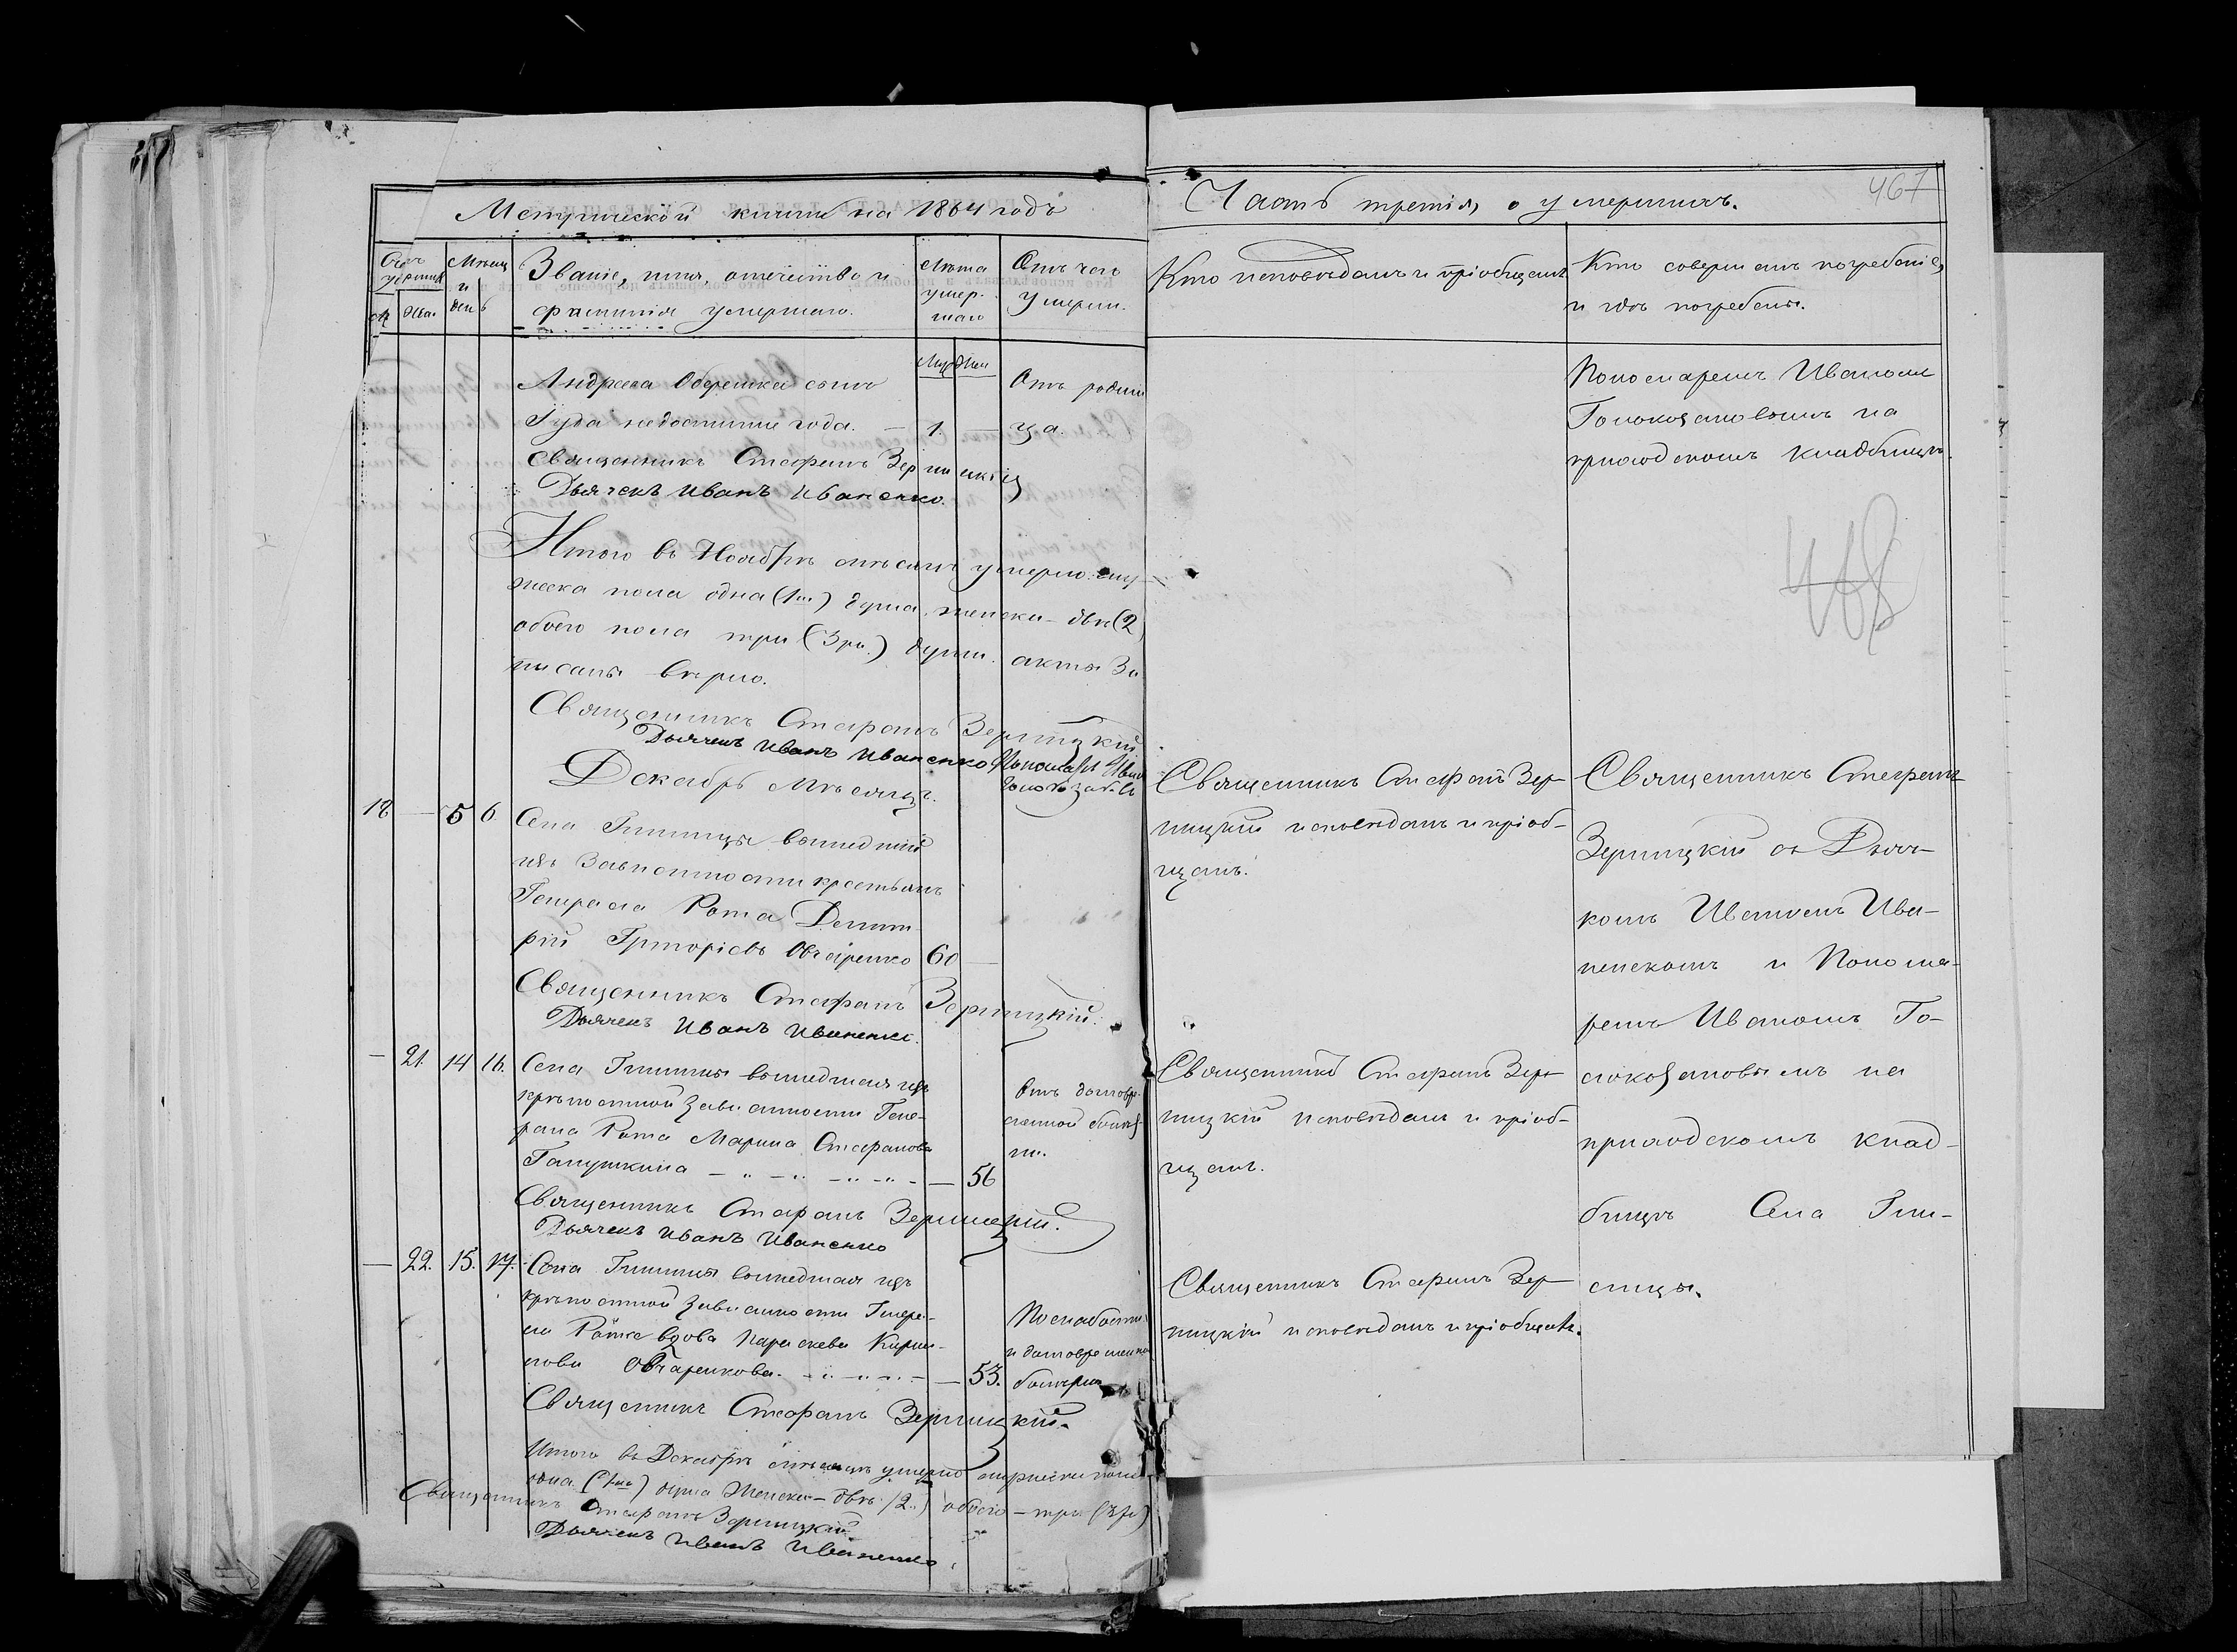 Метрической книги на 1864 годъ
Часть третія, о умершихъ.
467
Счетъ умершихъ
Мѣсяц и день
Званіе, имя, отечество и
фамилія умершаго.
Лѣта умер-
шаго
Отъ чего
умеръ.
Кто исповѣдалъ и пріобщалъ
Кто совершалъ погребеніе,
и гдѣ погребены.
Муж Жен
Муж Жен
Андреева сынъ
Гуда недостигши года. — 1. —
Отъ родим
ца.
Пономаремъ Иваномъ
на
приходскомъ кладбищѣ.
Священникъ Стефанъ Зерницкій
Дьячекъ Иванъ Иваненко.
468
Итого въ Ноябрѣ мѣсяцѣ умерло: му-
жеска пола одна (1на) душа, женска - двѣ (2
обоего пола три (3ри.) души. акты За
писаны вѣрно.
Священникъ Стефанъ Зерницкій.
Дьячекъ Иванъ Иваненко Пономарь Иван
Декабрь Мѣсяцъ.
18 — 5 6. Села Глиницы вышедшій
изъ Зависимости крестьянъ
Генерала Рота Димит-
рій Григорієвъ Овчаренко 60 —
Священникъ Стефанъ Зер-
ницкій исповѣдалъ и пріоб-
щалъ.
Священникъ Стефанъ Зерницкій.
Дьячекъ Иванъ Иваненко.
Священникъ Стефанъ
Зерницкій съ Дьяч-
комъ Иваномъ Ива-
ненкомъ и Понома-
ремъ Иваномъ Го-
на
приходскомъ клад-
бищѣ Села Гли-
ницы.
— 21. 14 16. Села Глиницы вышедшая изъ
крѣпостной зависимости Гене-
рала Рота Марина Стефанова
Галушкина — — 56
Отъ долговре-
менной болѣз-
ни.
Священникъ Стефанъ Зер-
ницкій исповѣдалъ и пріоб-
щалъ.
Священникъ Стефанъ Зерницкій.
Дьячекъ Иванъ Иваненко
— 22. 15. 17. Села Глиницы вышедшая изъ
крѣпостной зависимости Генера-
ла Рота вдова Параскева Кирил-
лова Овчаренкова. — — 53.
По слабости
и долговременной
болѣзни
Священникъ Стефанъ Зер-
ницкій исповѣдалъ и пріобщалъ.
Священникъ Стефанъ Зерницкій.
Итого въ Декабрѣ мѣсяцѣ умерло мужеска пола
одна (1на) душа Женска — двѣ (2.) обоего — три (3ри)
Священникъ Стефанъ Зерницкій
Дьячекъ Иванъ Иваненко.